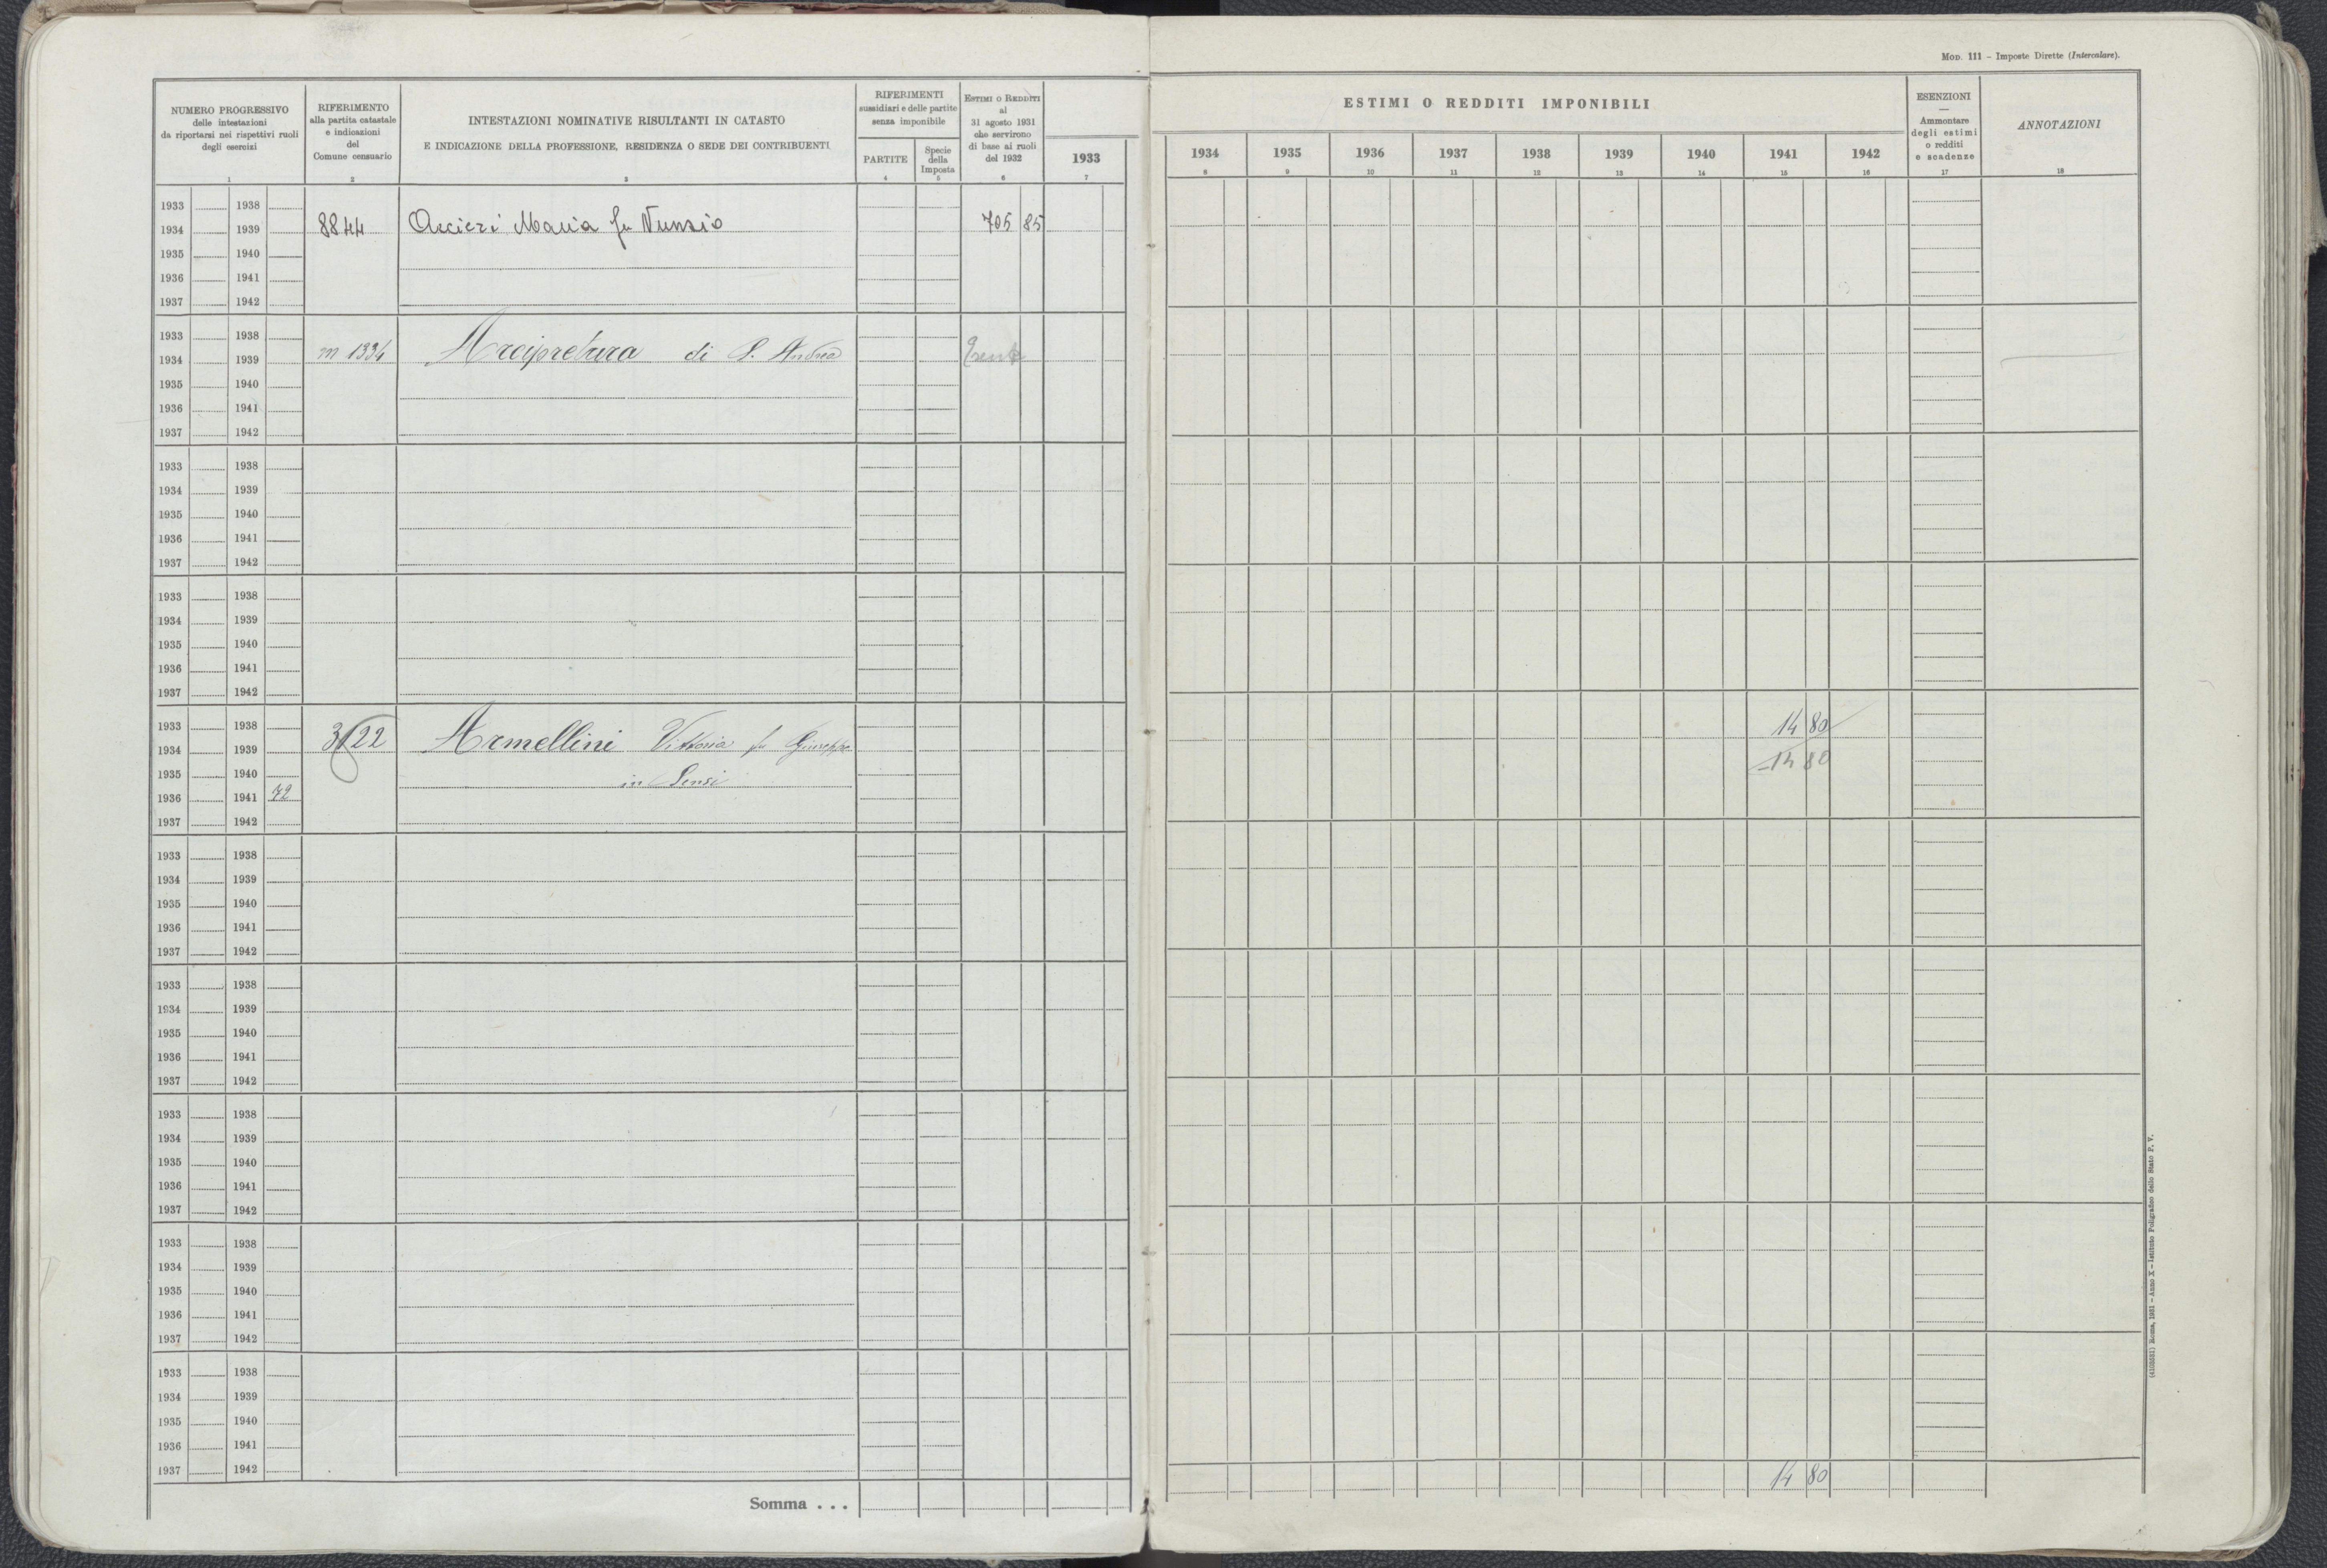 MOD. 111 – Imposte Dirette (Intercalare).
NUMERO PROGRESSIVO
delle intestazioni
da riportarsi nei rispettivi ruoli
degli esercizi
1
RIFERIMENTO
alla partita catastale
e indicazioni
del
Comune censuario
2
INTESTAZIONI NOMINATIVE RISULTANTI IN CATASTO
E INDICAZIONE DELLA PROFESSIONE, RESIDENZA O SEDE DEI CONTRIBUENTI
3
RIFERIMENTI
sussidiari e delle partite
senza imponibile
PARTITE
4
Specie
della
Imposta
5
ESTIMI O REDDITI
al
31 agosto 1931
che servirono
di base ai ruoli
del 1932
6
1933
7
ESTIMI O REDDITI IMPONIBILI
1934 1935 1936 1937 1938 1939 1940 1941 1942
8 9 10 11 12 13 14 15 16
ESENZIONI
—
Ammontare
degli estimi
o redditi
e scadenze
17
ANNOTAZIONI
18
1933 1938
1934 1939 8844 Arcieri Maria fu Nunzio 705 85
1935 1940
1936 1941
1937 1942
1933 1938
1934 1939 m 1334 Arcipretura di S. Andrea Esente
1935 1940
1936 1941
1937 1942
1933 1938
1934 1939
1935 1940
1936 1941
1937 1942
1933 1938
1934 1939
1935 1940
1936 1941
1937 1942
1933 1938 14 80
1934 1939 3122 Armellini Vittoria fu Giuseppe
1935 1940 –14 80
1936 1941 72 in Sensi
1937 1942
1933 1938
1934 1939
1935 1940
1936 1941
1937 1942
1933 1938
1934 1939
1935 1940
1936 1941
1937 1942
1933 1938
1934 1939
1935 1940
1936 1941
1937 1942
1933 1938
1934 1939
1935 1940
1936 1941
1937 1942
1933 1938
1934 1939
1935 1940
1936 1941
1937 1942
Somma . . . 14 80
(4103531) Roma, 1931 – Anno X – Istituto Poligrafico dello Stato P. V.